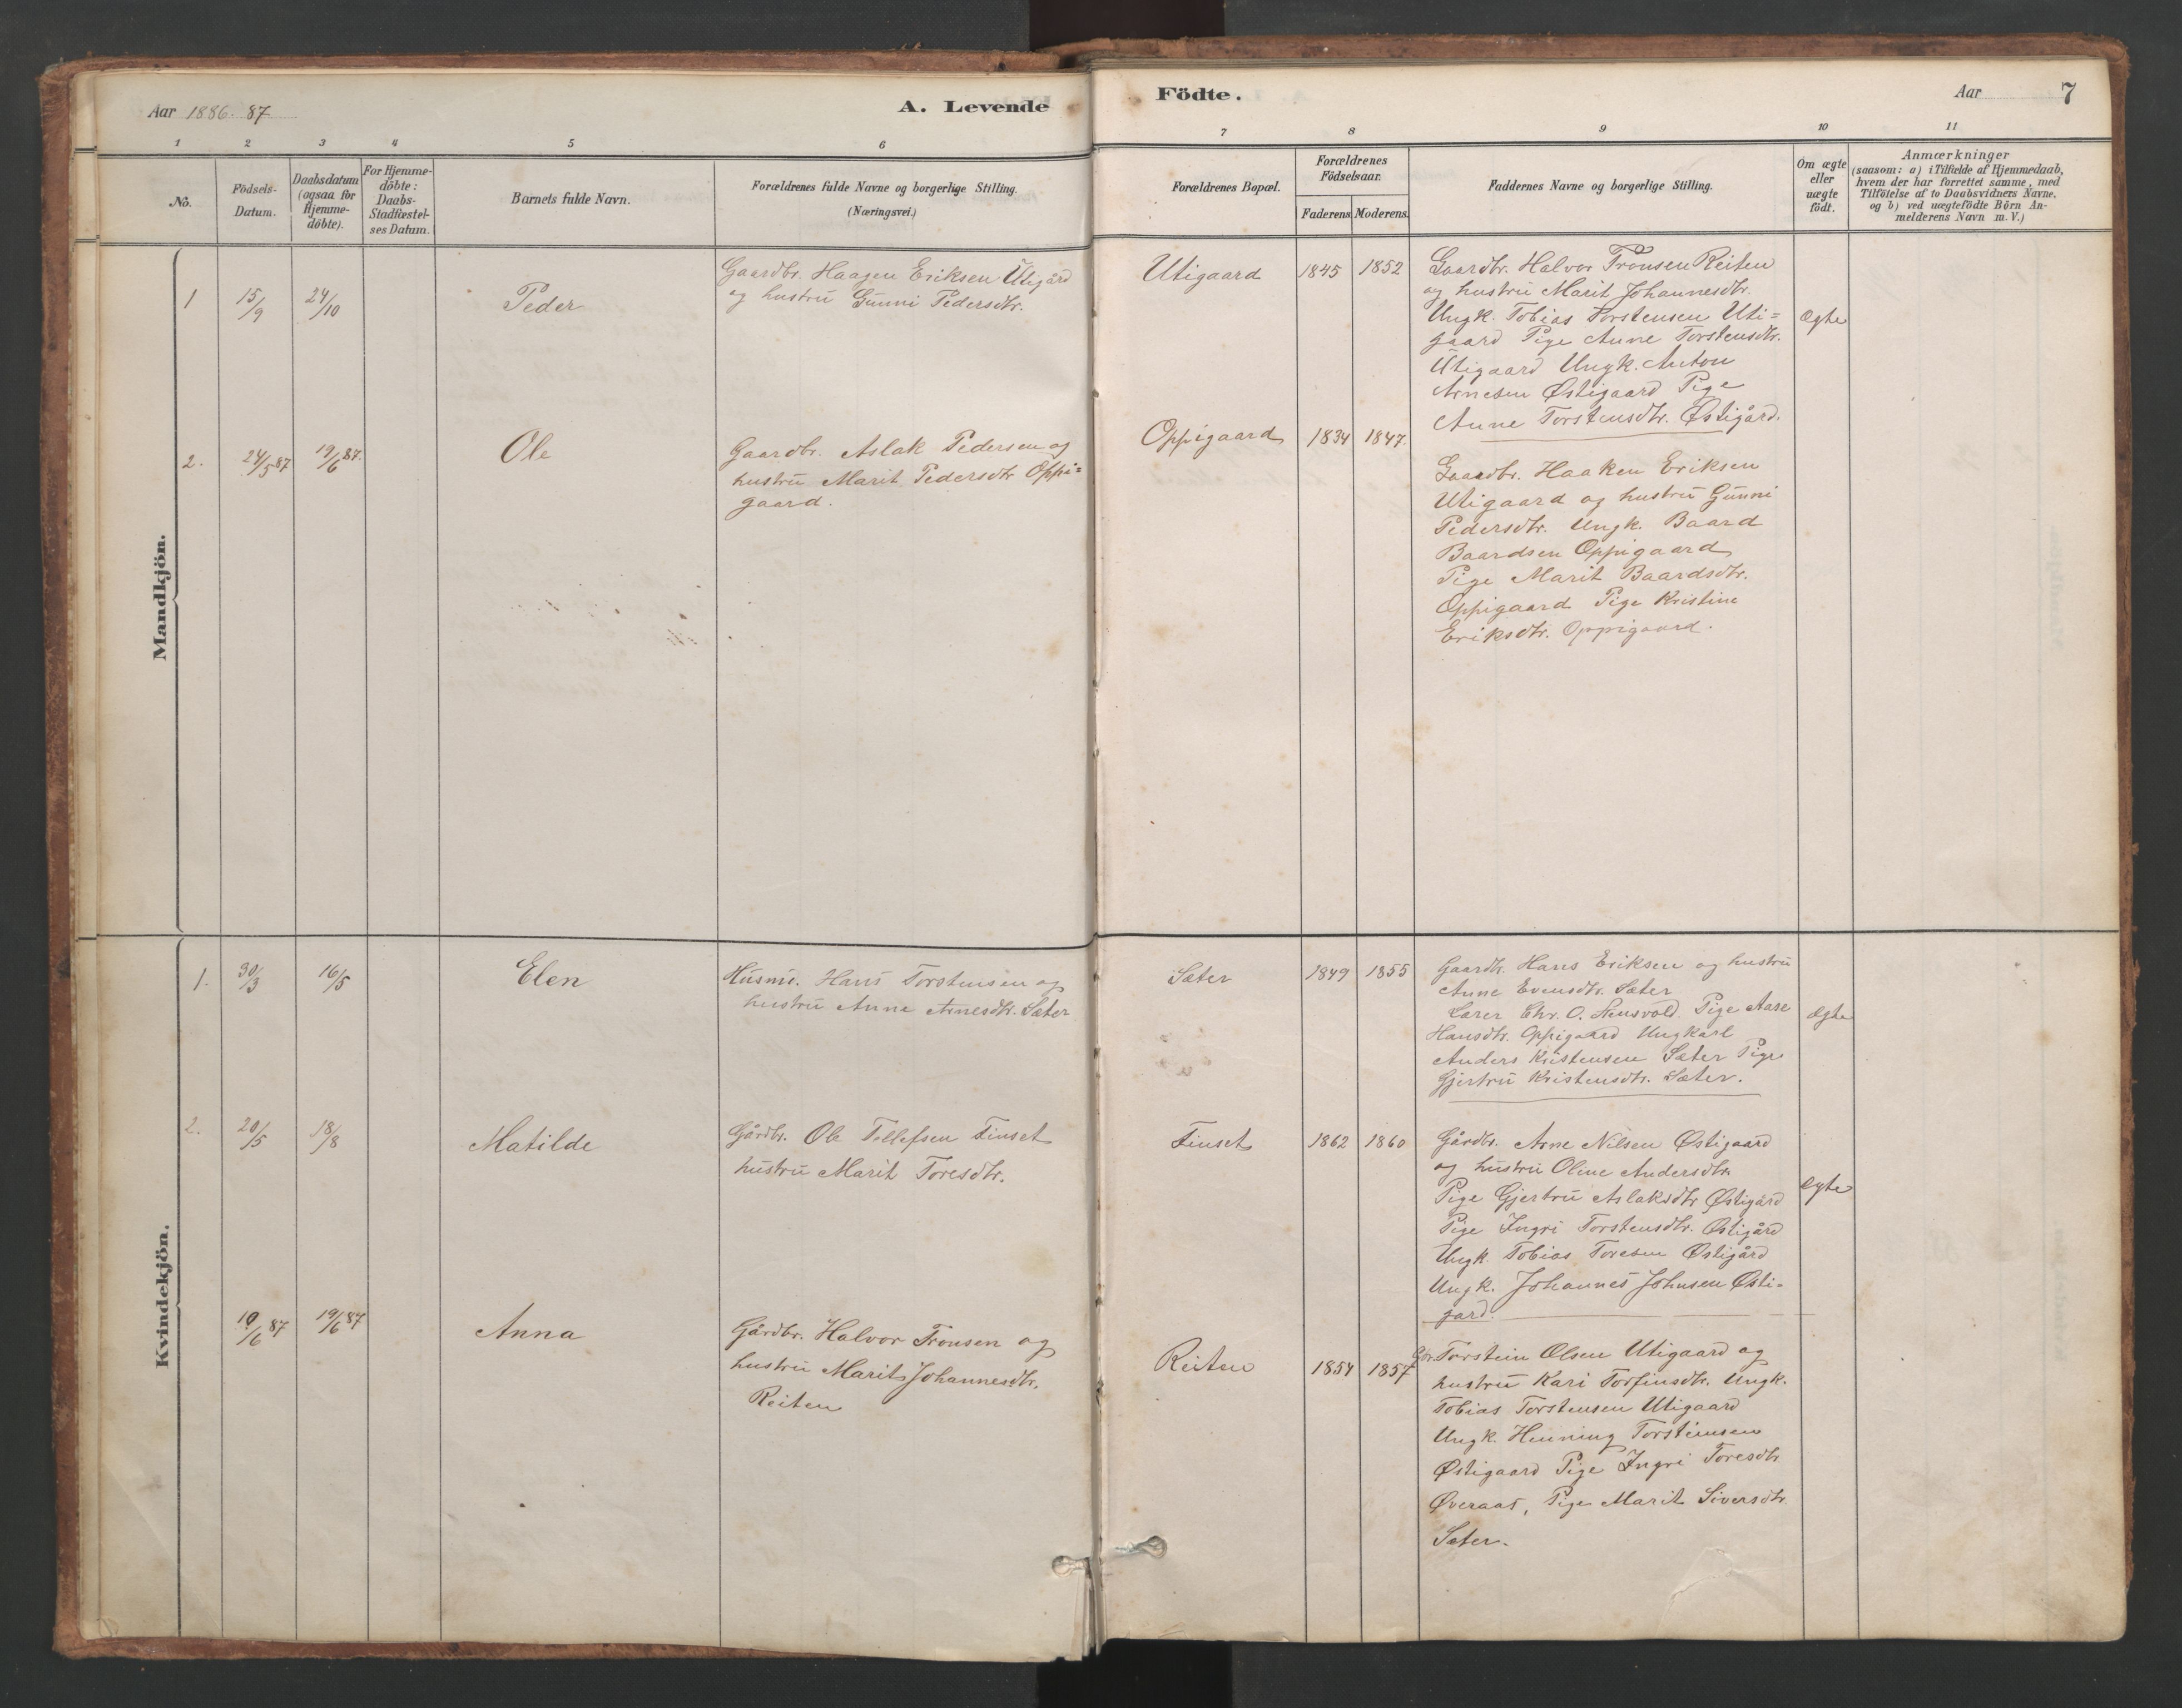 Aar 1886. 87
A. Levende Födte.
Aar
7
1 2 3 4 5 6 7 8 9 10 11
No.
Födsels-
Datum.
Daabsdatum
(ogsaa for
Hjemme-
döbte).
For Hjemme-
döbte:
Daabs-
Stadfæstel-
ses Datum.
Barnets fulde Navn.
Forældrenes fulde Navne og borgerlige Stilling.
(Næringsvei.)
Forældrenes Bopæl.
Forældrenes
Födselsaar.
Faderens. Moderens.
Faddernes Navne og borgerlige Stilling.
Om ægte
eller
uægte
födt.
Anmærkninger
(saasom: a) i Tilfælde af Hjemmedaab,
hvem der har forrettet samme, med
Tilföielse af to Daabsvidners Navne,
og b) ved uægtefödte Börn An-
melderens Navn m. V.)
Mandkjön.
1 15/9 24/10 Peder
Gaardbr. Haagen Eriksen Utigård
og hustru Gunni Pedersdtr.
Utigaard 1845 1852
Gaardbr. Halvor Tronsen Reiten
og hustru Marit Johannesdtr.
Ungk. Tobias Torstensen Uti=
gaard Pige Anne Torstensdtr.
Utigaard Ungk. Anton
Arnesen Østigaard Pige
Anne Torstensdtr. Østigård.
Ægte
2. 24/5 87 19/6 87. Ole
Gaardbr. Aslak Pedersen og
hustru Marit Pedersdtr Oppi=
gaard.
Oppigaard 1834 1847.
Gaardbr. Haaken Eriksen
Utigaard og hustru Gunni
Pedersdtr. Ungk. Baard
Baardsen Oppigaard
Pige Marit Baardsdtr.
Oppigaard Pige Kristine
Eriksdtr. Oppigaard.
Kvindekjön.
1. 30/3 16/5 Elen
Husm. Hans Torstensen og
hustru Anne Arnesdtr. Sæter
Sæter 1849 1855
Gaardbr. Hans Eriksen og hustru
Anne Evensdtr. Sæter
Lærer Chr. O. Neusvold. Pige Aase
Hansdtr. Oppigaard Ungkarl
Anders Kristensen Sæter Pige
Gjertru Kristensdtr. Sæter.
Ægte
2. 20/5 18/8 Matilde
Gårdbr. Ole Tollefsen Finset
hustru Marit Toresdtr.
Finset 1862 1860
Gårdbr. Arne Nilsen Østigaard
og hustru Oline Andersdtr
Pige Gjertru Aslaksdtr Østigård
Pige Ingri Torstensdtr. Østigård
Ungk. Tobias Toresen Østigård
Ungk. Johannes Johnsen Østi-
gård.
Ægte
10/6 87 19/6 87 Anna
Gårdbr. Halvor Tronsen og
hustru Marit Johannesdtr.
Reiten
Reiten 1854 1857
Gbr. Torstein Olsen Utigaard og
hustru Kari Torfinsdtr. Ungk.
Tobias Torstensen Utigaard
Ungk. Henning Torsteinsen
Østigaard Pige Ingri Toresdtr
Øveraas, Pige Marit Siversdtr
Sæter.